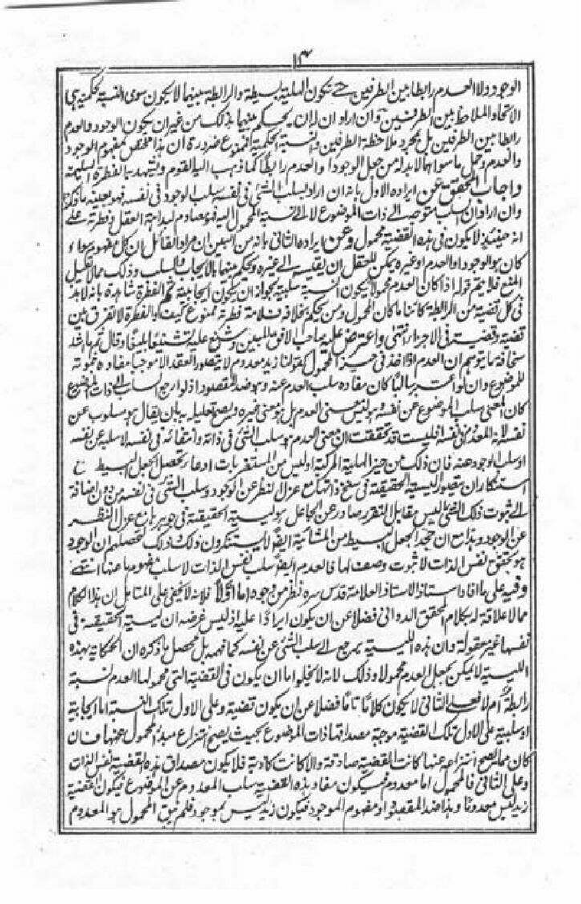 الوجود ولا العدم رابطا بين الطرفين حتى تكون الهلية البسيطة والرابطة بينهما لا يكون سوى النسبة الحكمية هى
الاتحاد الملاحظ بين الطرفين وان اراد ان يحكم منهما بذلك من غير ان يكون الوجود والعدم
رابطا بين الطرفين بل بمجرد ملاحظة الطرفين والنسبة الحكمية ضرورة ان هذا مختص بمفهوم الوجود
والعدم وحمل ما سواهما لابد له من جعل الوجود او العدم رابطا كما ذهب اليه القوم وتشهد به الفطرة السليمة
واجاب المحقق عن ايراده الاول بانه ان اراد بسلب الشئ فى نفسه سلب لوجود فى نفسه فهو بعينه ما ذكره
وان اراد ان السلب متوجه الى ذات الموضوع لا الى نسبة المحمول اليه فهو مصادم لبداهة العقل وفطرته على
انه حينئذ لا يكون فى هذه القضية محمول وعن ايراده الثانى بانه من البين ان مراد القائل ان كل مفهوم سواء
كان هو الوجود او العدم او غيره يمكن للعقل ان يقيسه الى غيره ويحكم بينهما بالايجاب والسلب وذلك مما لا يقبل
المنع فلا يتم قوله اذا كان العدم محمولا لا يكون النسبة سلبية بجواز ان يكون ايجابية ثم الفطرة شاهدة بانه لابد
فى كل قضية من الرابطة كائنا ما كان المحمول ومن يحكم بخلافه فسلامة فطرته ممنوع كيف والفطرة لا تفرق بين
قضية وقضية فى الاجزاء انتهى واعترض عليه صاحب الافق المبين وشنع عليه تشنيعا بليغا وقال ثم ما اشد
سخافة ما يتوهم ان العدم اذا اخذ فى حيز المحمول كقولنا زيد معدوم لا يتصور العقد الا موجبا مفاده ثبوته
للموضوع وان لو اعتبر سالبا كان مفاده سلب العدم عنه وهو ضد المقصود اذ لو ارجع السلب الى ذات الموضوع
كان المعنى سلب الموضوع عن نفسه وليس معنى العدم بل هو معنى غيره ويصح تعليله به بان يقال هو مسلوب عن
نفسه لانه المعدوم فى نفسه افليست قد تحققت ان معنى العدم هو سلب الشئ فى ذاته وانتفائه فى نفسه لا سلبه عن نفسه
او سلب الوجود عنه فان ذلك من حيز الهلية المركبة وليس من المستغربات ادعاء محصل الجعل البسيط مع
استنكار ان يتصور الليسية الحقيقية فى سنخ ذاتها مع عزل النظر عن الوجود وسلب الشئ فى نفسه من دون اضافة
الى ثبوت ذلك الشئ اليس مقابل التقرر صادر عن الجاعل هو ليسية الحقيقة فى جوهرها مع عزل النظر
عن الوجود وهذا مع ان جحد الجعل البسيط من المشائية ايضا لا يستنكرون ذلك وذلك لتحصيلهم ان الوجود
هو تحقق نفس الذات لا ثبوت وصف لها فالعدم ايضا سلب نفس الذات لا سلب مفهوم ما عنها انتهى
وفيه على ما افاده استاذ الاستاذ العلامة قدس سره نظر من وجوه اما اولا فلانه لا يخفى على المتأمل ان هذا الكلام
مما لا علاقة له بكلام المحقق الدوانى فضلا عن ان يكون ايرادا على اذ ليس غرضه ان ليسية الحقيقة فى
نفسها غير معقولة وان هذه الليسية يرجع الى سلب الشئ عن نفسه كما فهمه بل محصل ما ذكره ان الحكاية بهذه
الليسية لا يمكن بجعل العدم محمولا وذلك لانه لا يخلو اما ان يكون فى القضية التى محمولها العدم نسبة
رابطة ام لا فعلى الثانى لا يكون كلاما تاما فضلا عن ان يكون قضية وعلى الاول تلك النسبة اما ايجابية
او سلبية على الاول تلك القضية موجبة مصداقها ذات الموضوع بحيث يصح انتزاع مبدء المحمول عنها فان
كان مما يصح انتزاعه عنها كانت القضية صادقة والا كانت كاذبة فلا يكون مصداق هذه القضية نفس الذات
وعلى الثانى فالمحمول اما معدوم فيكون مفاد هذه القضية سلب المعدوم عن الموضوع فيكون القضية
زيد ليس معدوما وهذا ضد المقصود او مفهوم الموجود فيكون زيد ليس بموجود فلم يبق المحمول هو المعدوم